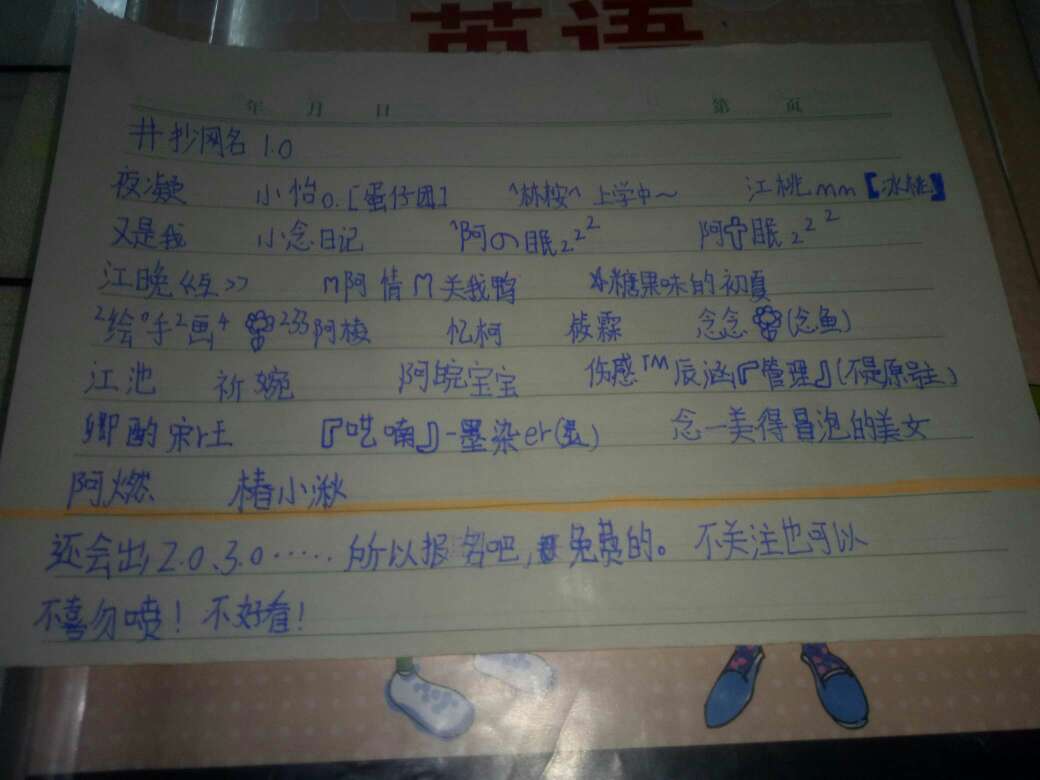 英语
年 月 日 第 页
#抄网名 1.0
夜凝 小怡o.[蛋仔团] ^林桉^ 上学中~ 江桃mm【冰桃】
又是我 小念日记 ^阿の眠zᶻᶻ 阿眠zᶻᶻ
江晚 阿情 关我鸭 糖果味的初夏
²绘⁰手²画⁴ 233 阿棱 忆柯 筱霖 念念(念鱼)
江池 祈婉 阿皖宝宝 伤感™辰涵『管理』(不是原号主)
乡酌宋r王 『呓喃』-墨染er 念一美得冒泡的美女
阿燃 椿小湫
还会出2.0、3.0……所以报名吧,免费的。不关注也可以
不喜勿喷！不好看！